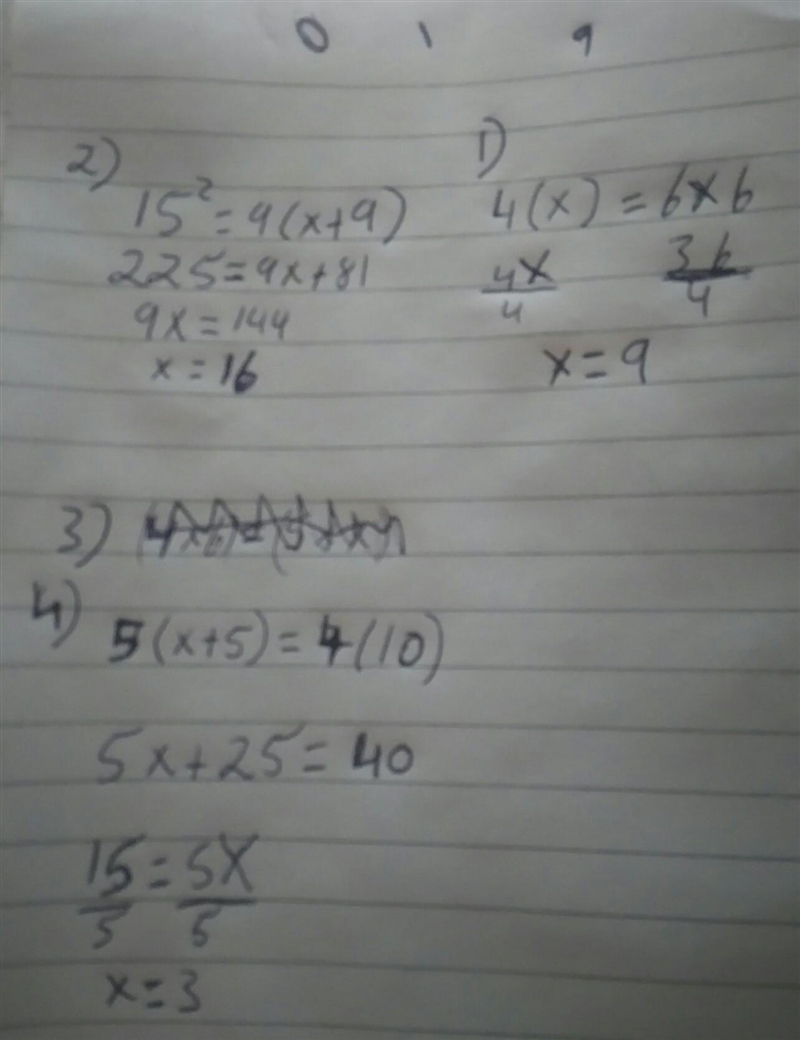 0 1 9
2)
15² = 9(x+9)
225 = 9x+81
9x = 144
x = 16
1)
4(x) = 6x6
4x/4 36/4
x = 9
3)
4)
5(x+5) = 4(10)
5x+25 = 40
15/5 = 5x/5
x = 3